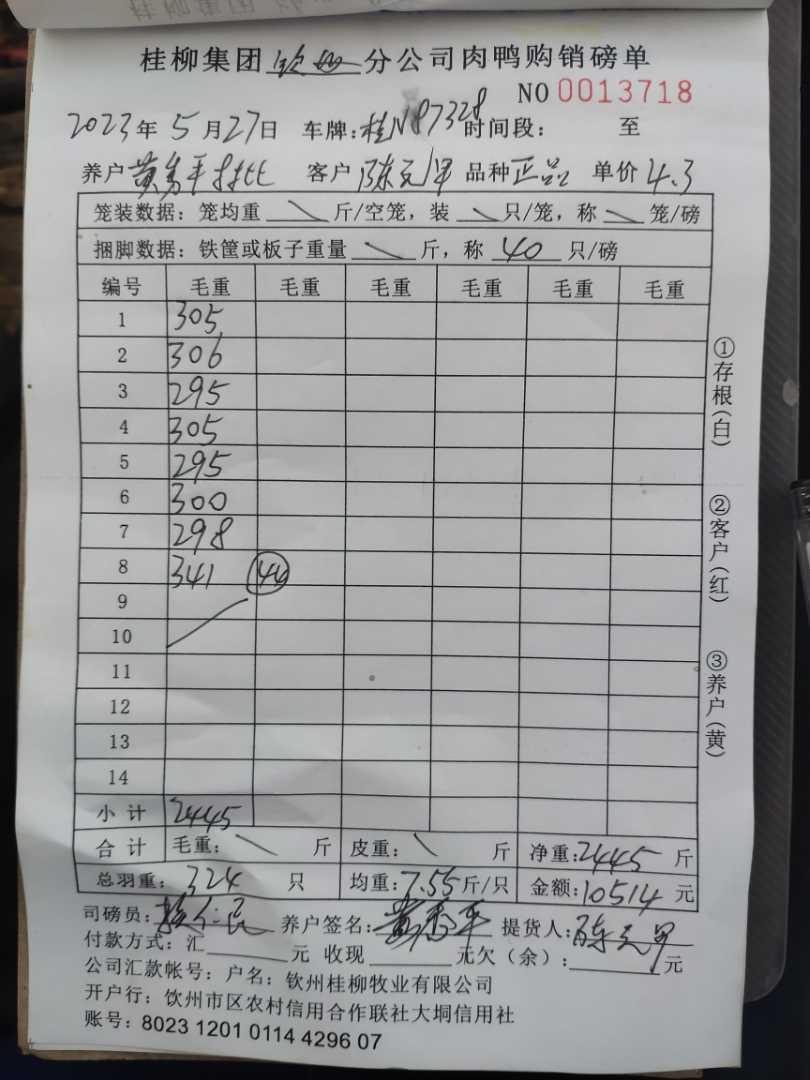 桂柳集团钦州分公司肉鸭购销磅单
NO 0013718
2023年5月27日 车牌:桂N87328时间段: 至
养户黄秀平 客户 陈元军 品种正品 单价4.3
笼装数据: 笼均重 \ 斤/空笼, 装 \ 只/笼, 称 \ 笼/磅
捆脚数据: 铁筐或板子重量 \ 斤, 称 40 只/磅
编号 毛重 毛重 毛重 毛重 毛重 毛重
1 305
2 306
3 295
4 305
5 295
6 300
7 298
8 341 44
9
10
11
12
13
14
小计 2445
合计 毛重: \ 斤 皮重: \ 斤 净重:2445 斤
总羽重: 324 只 均重:7.55斤/只 金额:10514 元
司磅员: 养户签名: 黄秀平 提货人:陈元军
付款方式: 汇 元 收现 元欠(余): 元
公司汇款帐号: 户名: 钦州桂柳牧业有限公司
开户行: 钦州市区农村信用合作联社大垌信用社
账号: 8023 1201 0114 4296 07
①存根(白)
②客户(红)
③养户(黄)